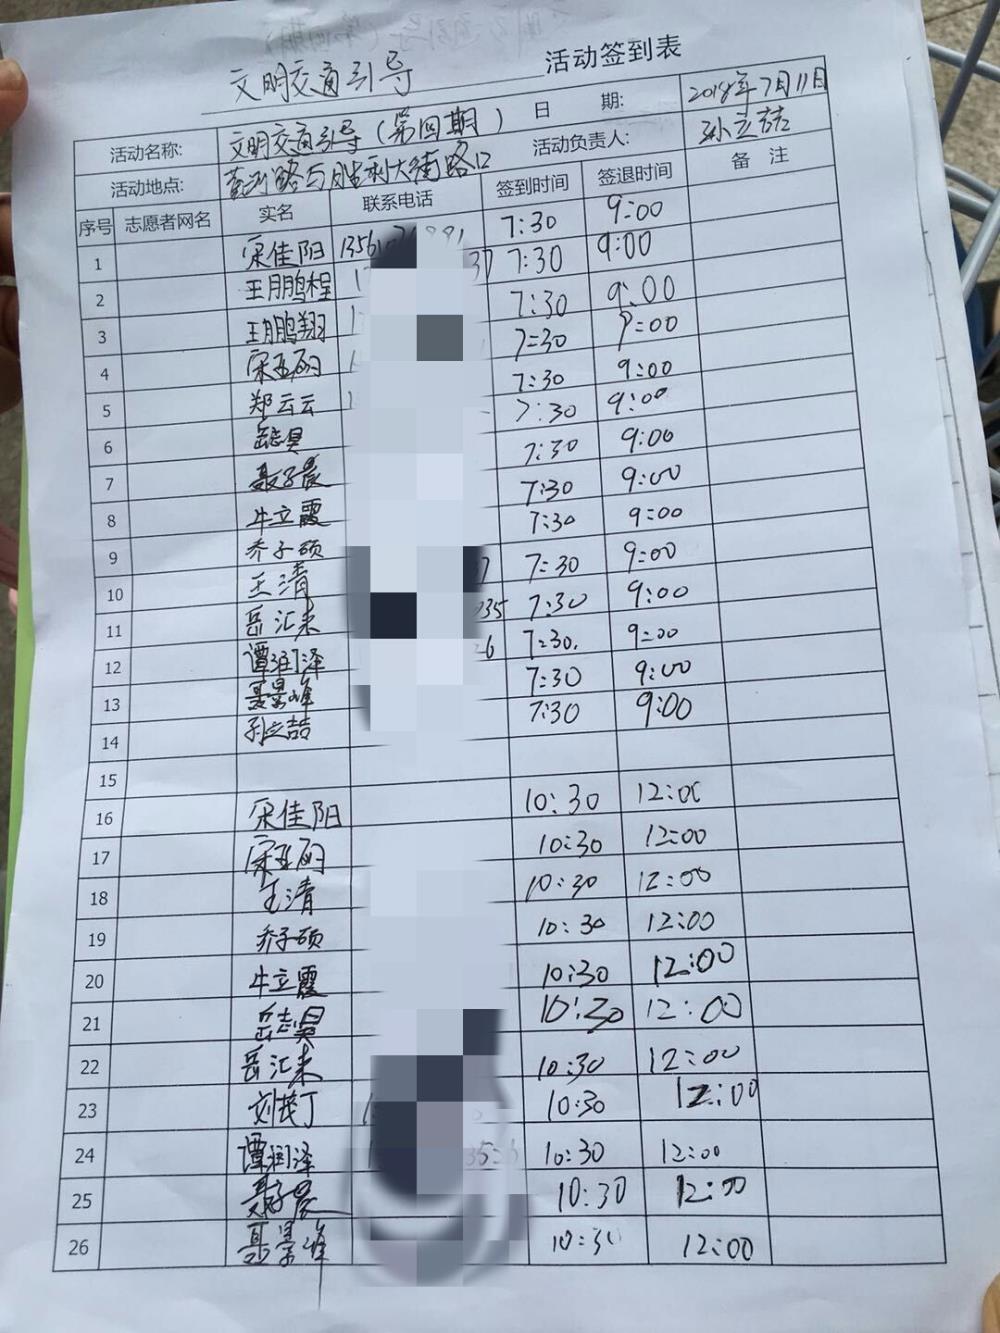 文明交通引导 活动签到表
活动名称: 文明交通引导(第四期) 日 期: 2018年7月11日
活动地点: 黄河路与胜利大街路口 活动负责人: 孙立喆
序号 志愿者网名 实名 联系电话 签到时间 签退时间 备 注
1 宋佳阳 7:30 9:00
2 王鹏程 37 7:30 9:00
3 王鹏翔 7:30 9:00
4 宋 7:30 9:00
5 郑云云 7:30 9:00
6 岳志昊 7:30 9:00
7 聂子晨 7:30 9:00
8 牛立霞 7:30 9:00
9 乔子硕 7:30 9:00
10 王清 7 7:30 9:00
11 岳汇未 035 7:30 9:00
12 谭润泽 26 7:30. 9:00
13 聂景峰 7:30 9:00
14 孙立喆 7:30 9:00
15
16 宋佳阳 10:30 12:00
17 宋 10:30 12:00
18 王清 10:30 12:00
19 乔子硕 10:30 12:00
20 牛立霞 10:30 12:00
21 岳志昊 10:30 12:00
22 岳汇未 10:30 12:00
23 刘 10:30 12:00
24 谭润泽 3526 10:30 12:00
25 聂子晨 10:30 12:00
26 聂景峰 10:30 12:00